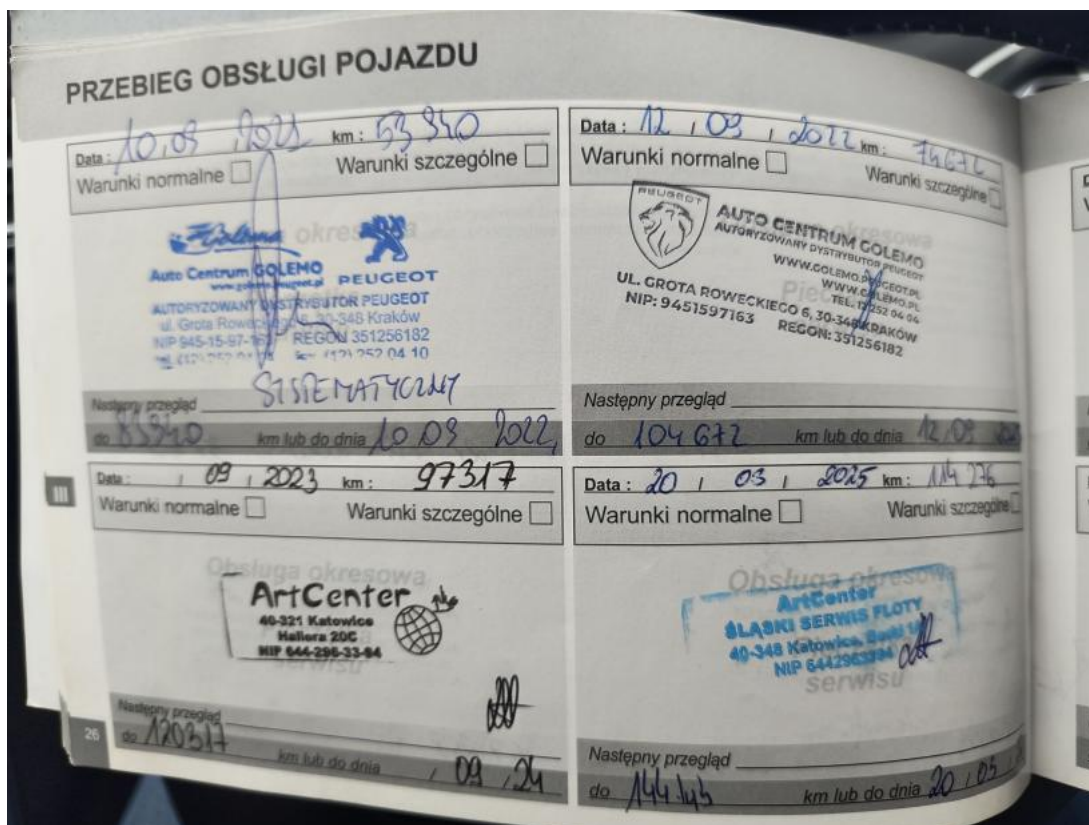 PRZEBIEG OBSŁUGI POJAZDU
Data : 10 , 09 , 2021 km : 53 940
Warunki normalne Warunki szczególne
okresowa
Auto Centrum GOLEMO PEUGEOT
AUTORYZOWANY DYSTRYBUTOR PEUGEOT
ul. Grota Roweckiego 6, 30-348 Kraków
NIP 945-15-97-163 REGON 351256182
(12) 252 04 10
SYSTEMATYCZNY
Następny przegląd
do 83940 km lub do dnia 10 09 2022
Data : 12 , 09 , 2022 km : 74672
Warunki normalne Warunki szczególne
PEUGEOT
AUTO CENTRUM GOLEMO
AUTORYZOWANY DYSTRYBUTOR PEUGEOT
WWW.GOLEMO.PEUGEOT.PL
WWW.GOLEMO.PL
TEL. 12 252 04 04
UL. GROTA ROWECKIEGO 6, 30-348 KRAKÓW
NIP: 9451597163 REGON: 351256182
Następny przegląd
do 104 672 km lub do dnia 12 , 09
III
Data : , 09 , 2023 km : 97317
Warunki normalne Warunki szczególne
Obsługa okresowa
ArtCenter
40-321 Katowice
Hallera 20C
NIP 644-296-33-94
serwisu
Następny przegląd
do 120317 km lub do dnia , 09 , 24
Data : 20 , 03 , 2025 km : 114 276
Warunki normalne Warunki szczególne
Obsługa okresowa
ArtCenter
ŚLĄSKI SERWIS FLOTY
40-348 Katowice,
NIP 6442963394
serwisu
Następny przegląd
do km lub do dnia 20 , 03
26